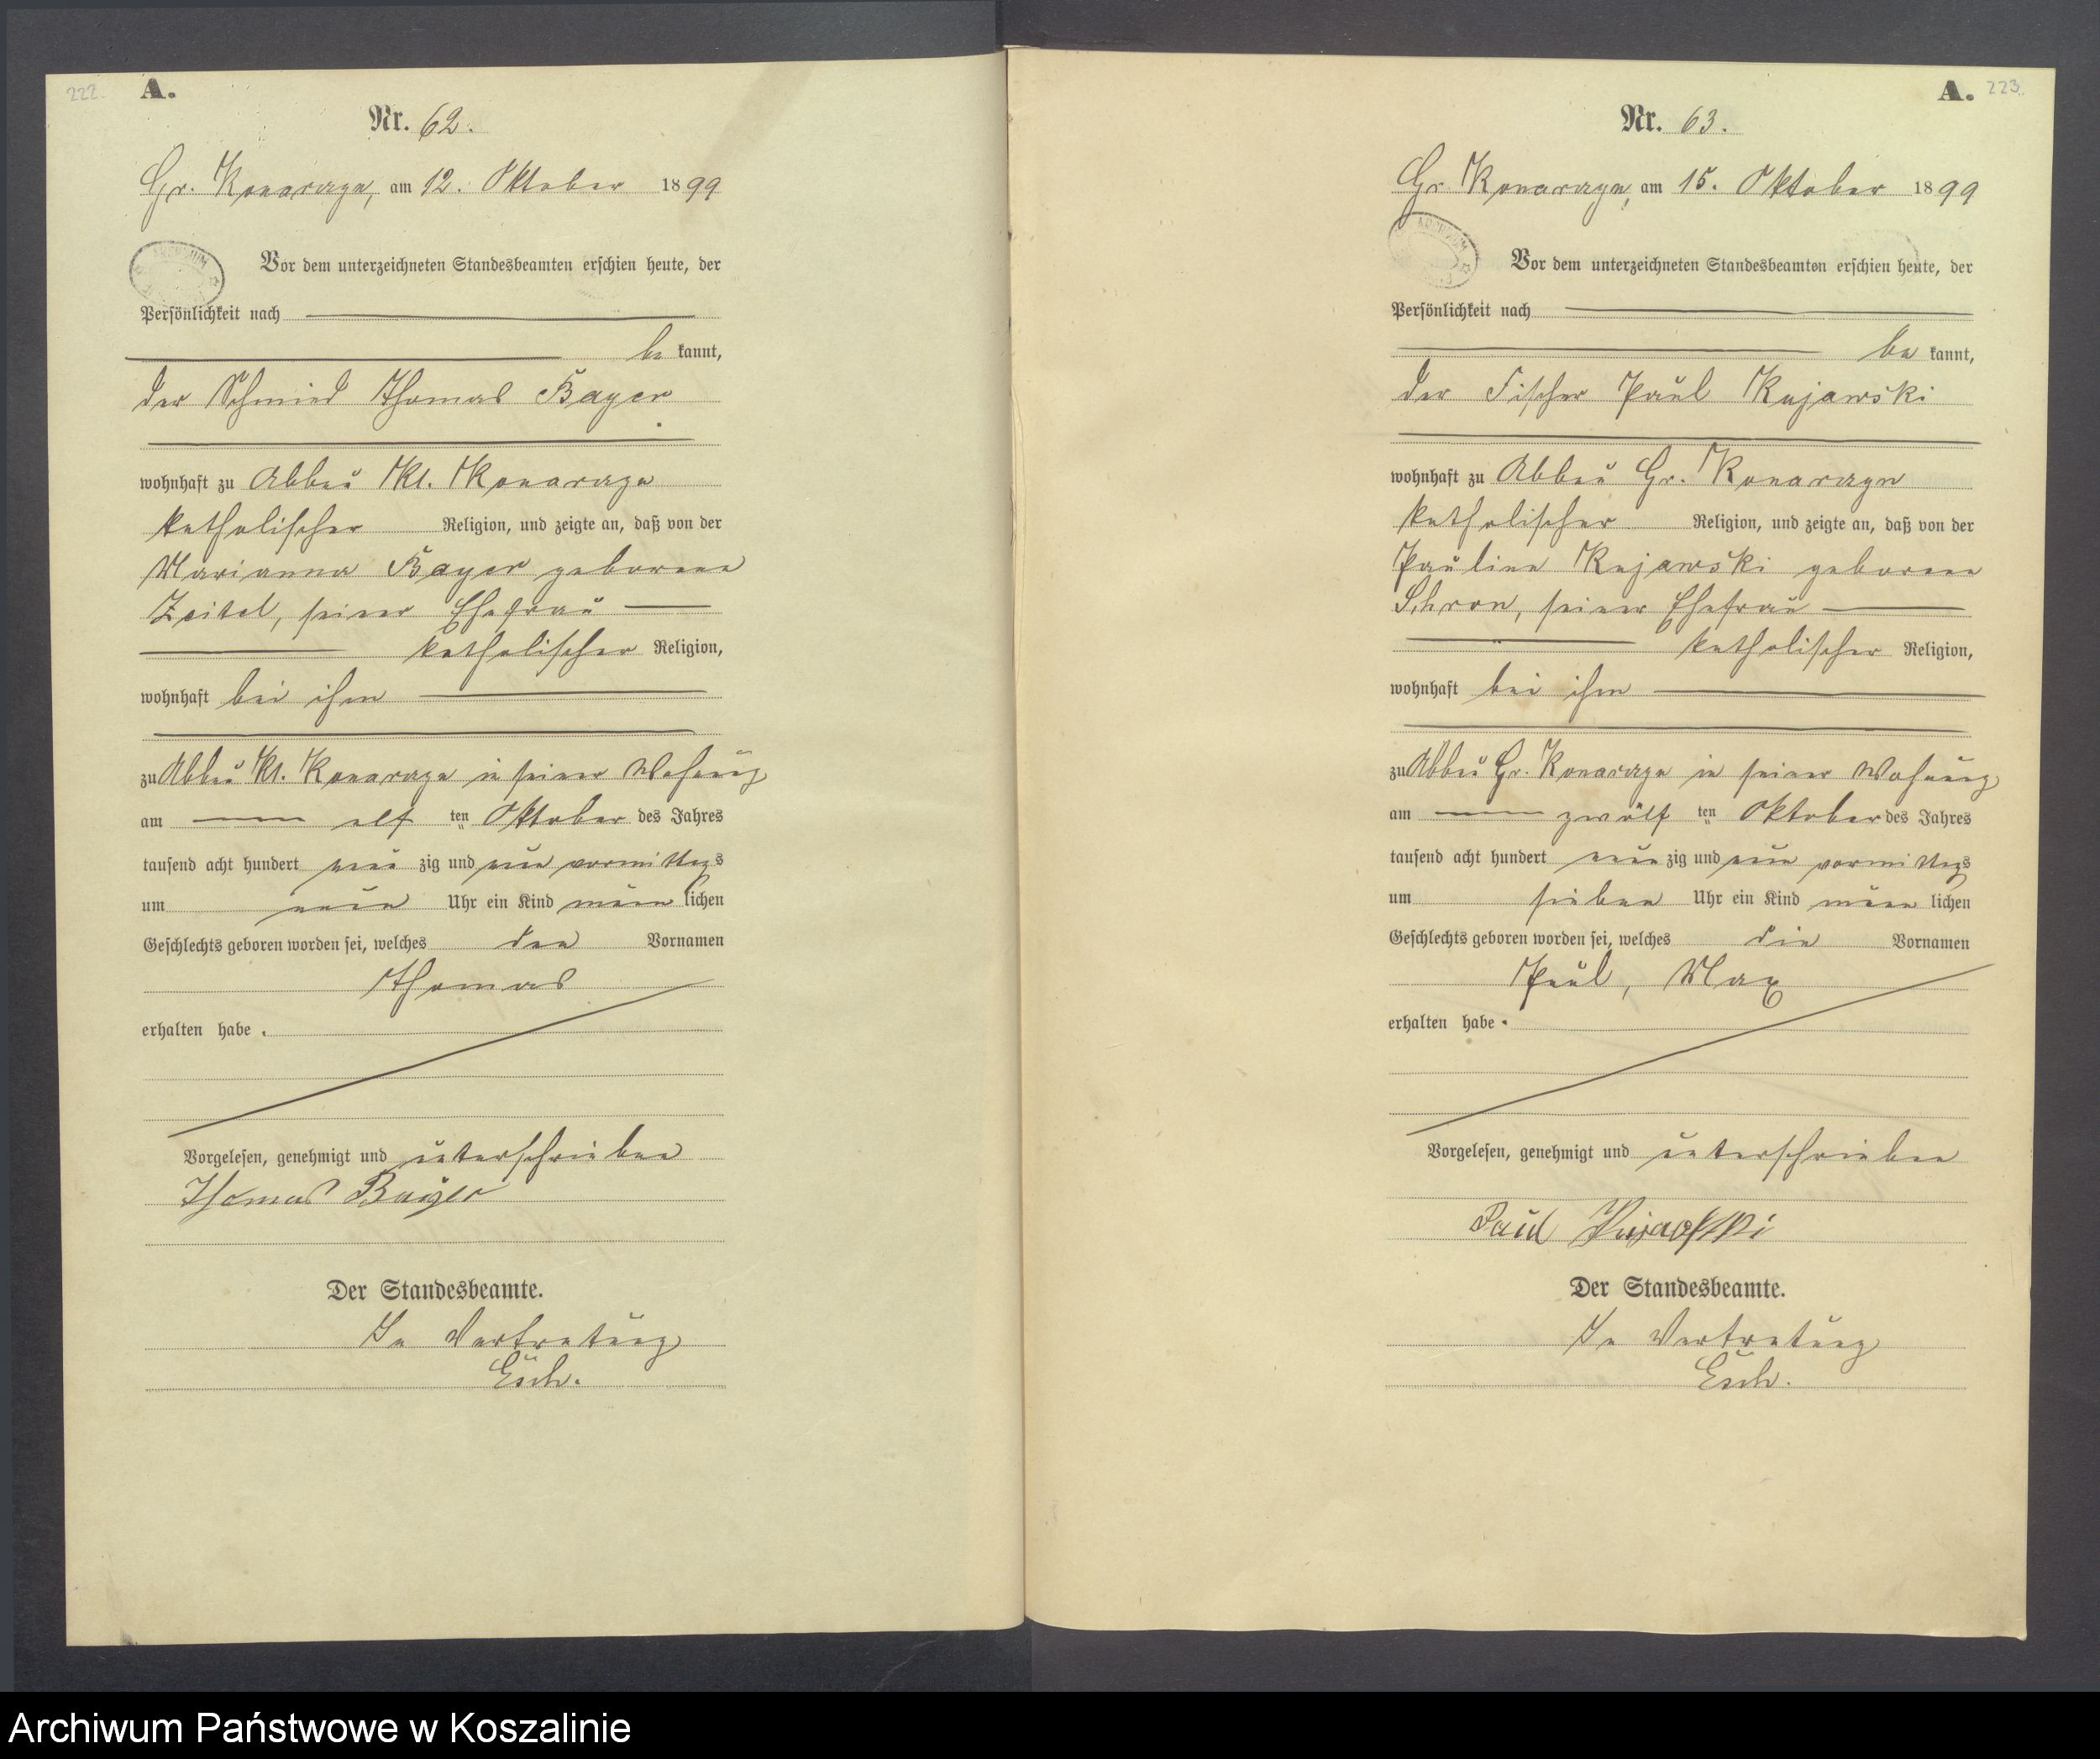 222.
A.
Nr. 62.
Gr. Konarczyn, am 12. Oktober 1899
Vor dem unterzeichneten Standesbeamten erschien heute, der
Persönlichkeit nach
be kannt,
der Schmied Thomas Bayer
wohnhaft zu Abbau Kl. Konarczyn
katholischer Religion, und zeigte an, daß von der
Marianna Bayer geborene
Zeitel, seiner Ehefrau
katholischer Religion,
wohnhaft bei ihm
zu Abbau Kl. Konarczyn in seiner Wohnung
am elf ten Oktober des Jahres
tausend acht hundert neun zig und neun vormittags
um neun Uhr ein Kind männ lichen
Geschlechts geboren worden sei, welches den Vornamen
Thomas
erhalten habe.
Vorgelesen, genehmigt und unterschrieben
Thomas Bayer
Der Standesbeamte.
In Vertretung
Esch.
A. 223.
Nr. 63.
Gr. Konarczyn, am 15. Oktober 1899
ARCHIWUM
Vor dem unterzeichneten Standesbeamten erschien heute, der
Persönlichkeit nach
be kannt,
der Fischer Paul Kujawski
wohnhaft zu Abbau Gr. Konarczyn
katholischer Religion, und zeigte an, daß von der
Pauline Kujawski geborene
Schron, seiner Ehefrau
katholischer Religion,
wohnhaft bei ihm
zu Abbau Gr. Konarczyn in seiner Wohnung
am zwölf ten Oktober des Jahres
tausend acht hundert neun zig und neun vormittags
um sieben Uhr ein Kind männ lichen
Geschlechts geboren worden sei, welches die Vornamen
Paul, Max
erhalten habe.
Vorgelesen, genehmigt und unterschrieben
Paul Kujawski
Der Standesbeamte.
In Vertretung
Esch.
Archiwum Państwowe w Koszalinie